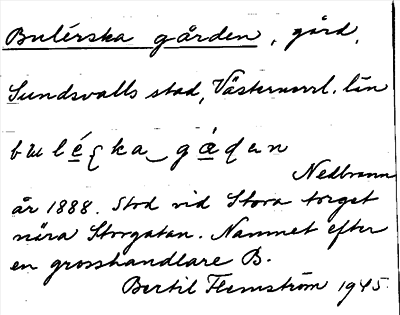 Bulérska gården, gård,
Sundsvalls stad, Västernorrl. län
Nedbrann
år 1888. Stod vid Stora torget
nära Storgatan. Namnet efter
en grosshandlare B.
Bertil Flemström 1945.